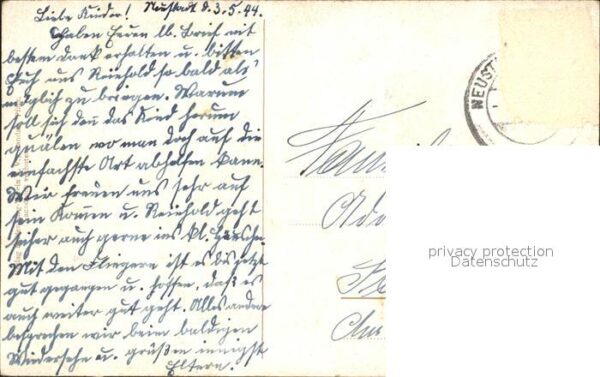 Neustadt d. 3. 5. 44.
Liebe Kinder!
Haben Euren lb. Brief mit
bestem Dank erhalten u. bitten
Euch uns Reinhold so bald als
möglich zu bringen. Warum
soll sich denn das Kind herum
quälen wo man doch auf die
einfachste Art abhelfen kann.
Wir freuen uns sehr auf
sein Kommen u. Reinhold geht
sicher auch gerne ins kl. Häuschen.
Mit den Fliegern ist es bis jetzt
gut gegangen u. hoffen, daß es
auch weiter gut geht. Alles andere
besprechen wir beim baldigen
Wiedersehn u. grüßen innigst
Eltern.
NEUST
Ado
privacy protection
Datenschutz